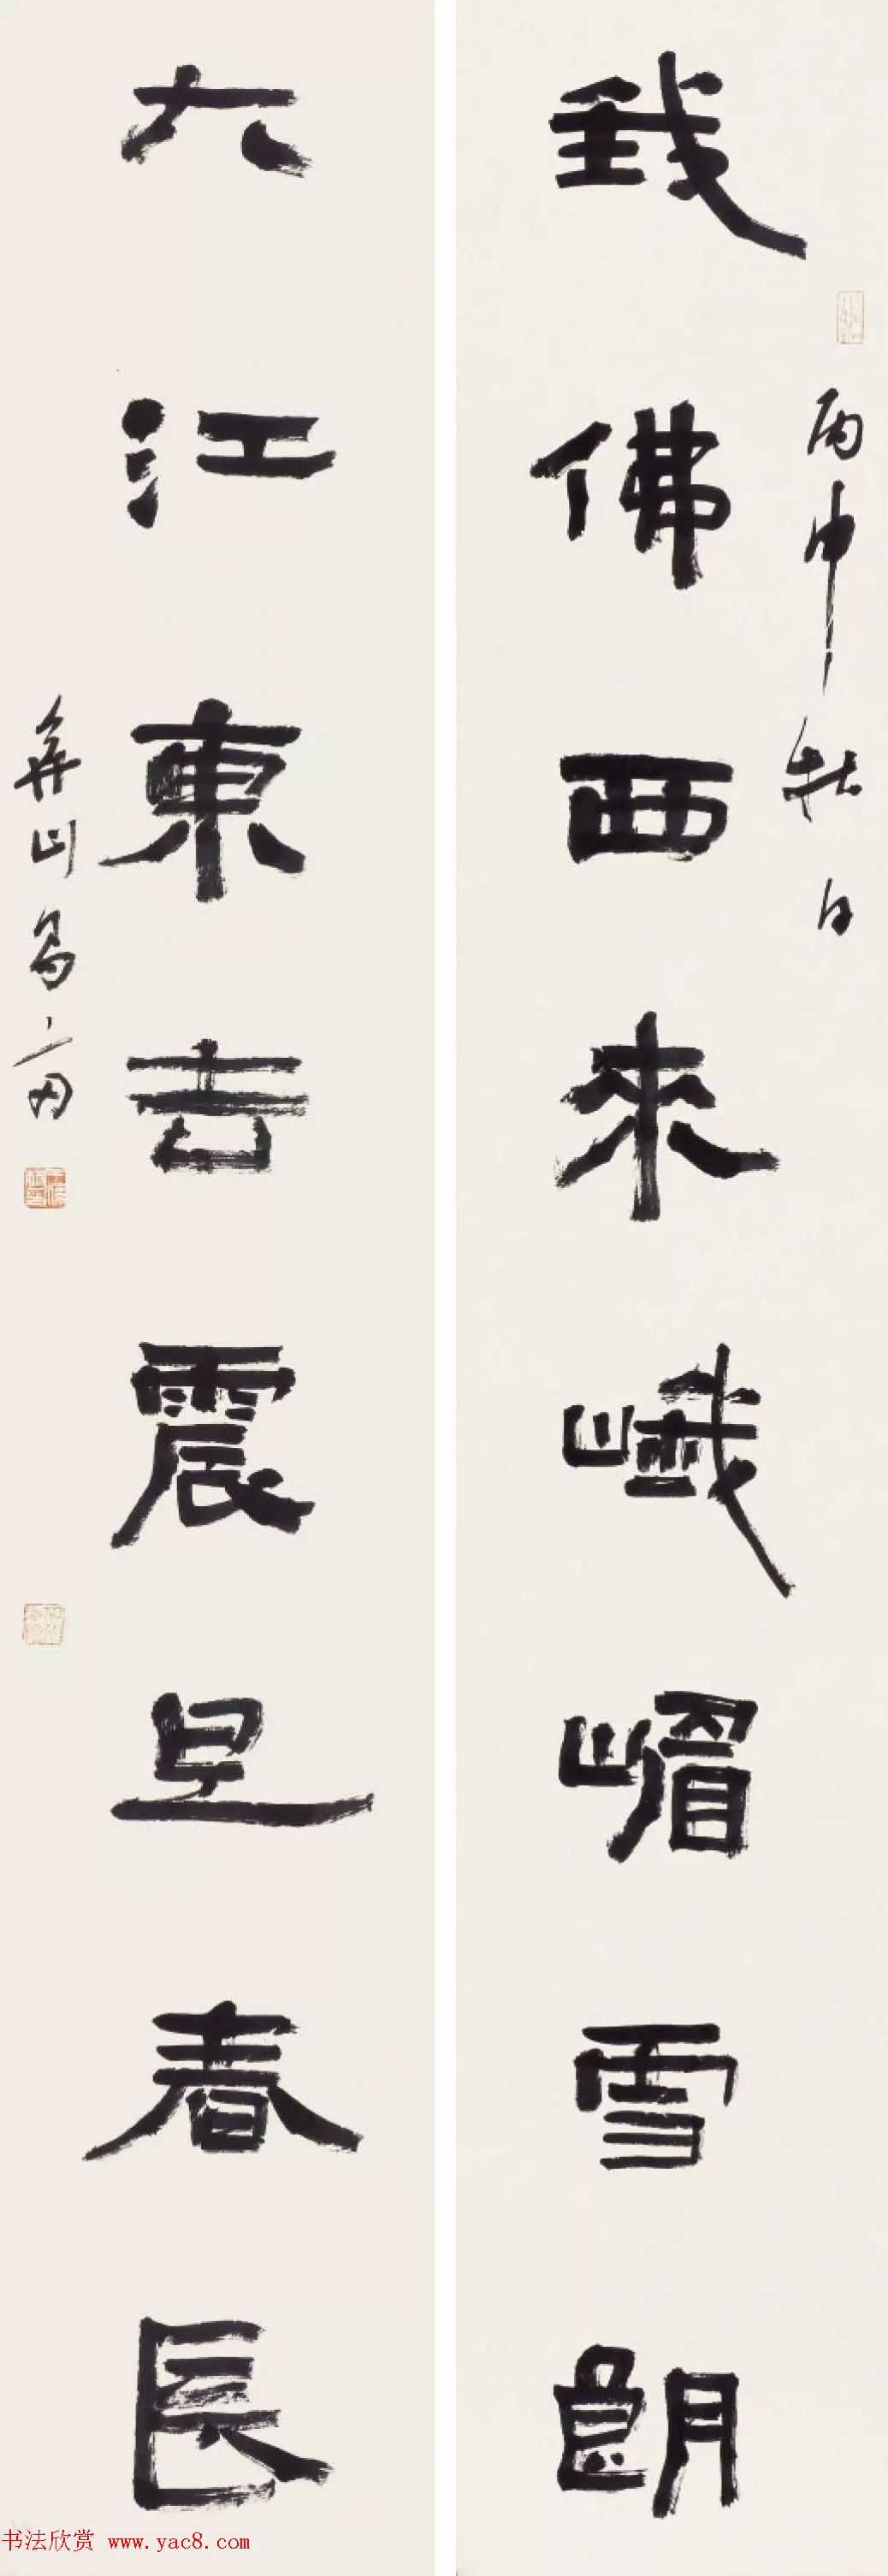 我佛西來峨嵋雪朗
丙申牡日
大江東去震旦春長
弄山
书法欣赏 www.yac8.com